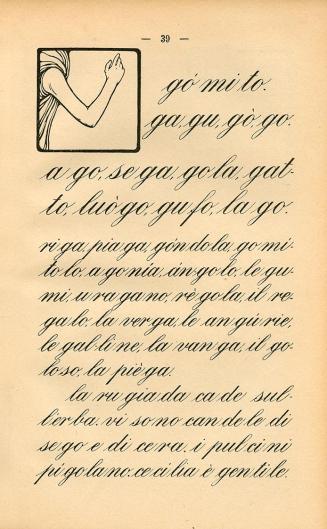 — 39 —
gó mi to.
ga, gu, gò, go.
a go, se ga, go la, gat-
to, luò go, gu fo, la go.
ri ga, pia ga, gón do la, go mi-
to lo, a go nía, án go lo, le gu-
mi, u ra ga no, rè go la, il re-
ga lo, la ver ga, le an gú rie,
le gal li ne, la van ga, il go-
lo so, la piè ga.
la ru gia da ca de sul-
l'er ba. vi so no can de le di
se go e di ce ra. i pul ci ni
pi go la no. ce ci lia è gen ti le.